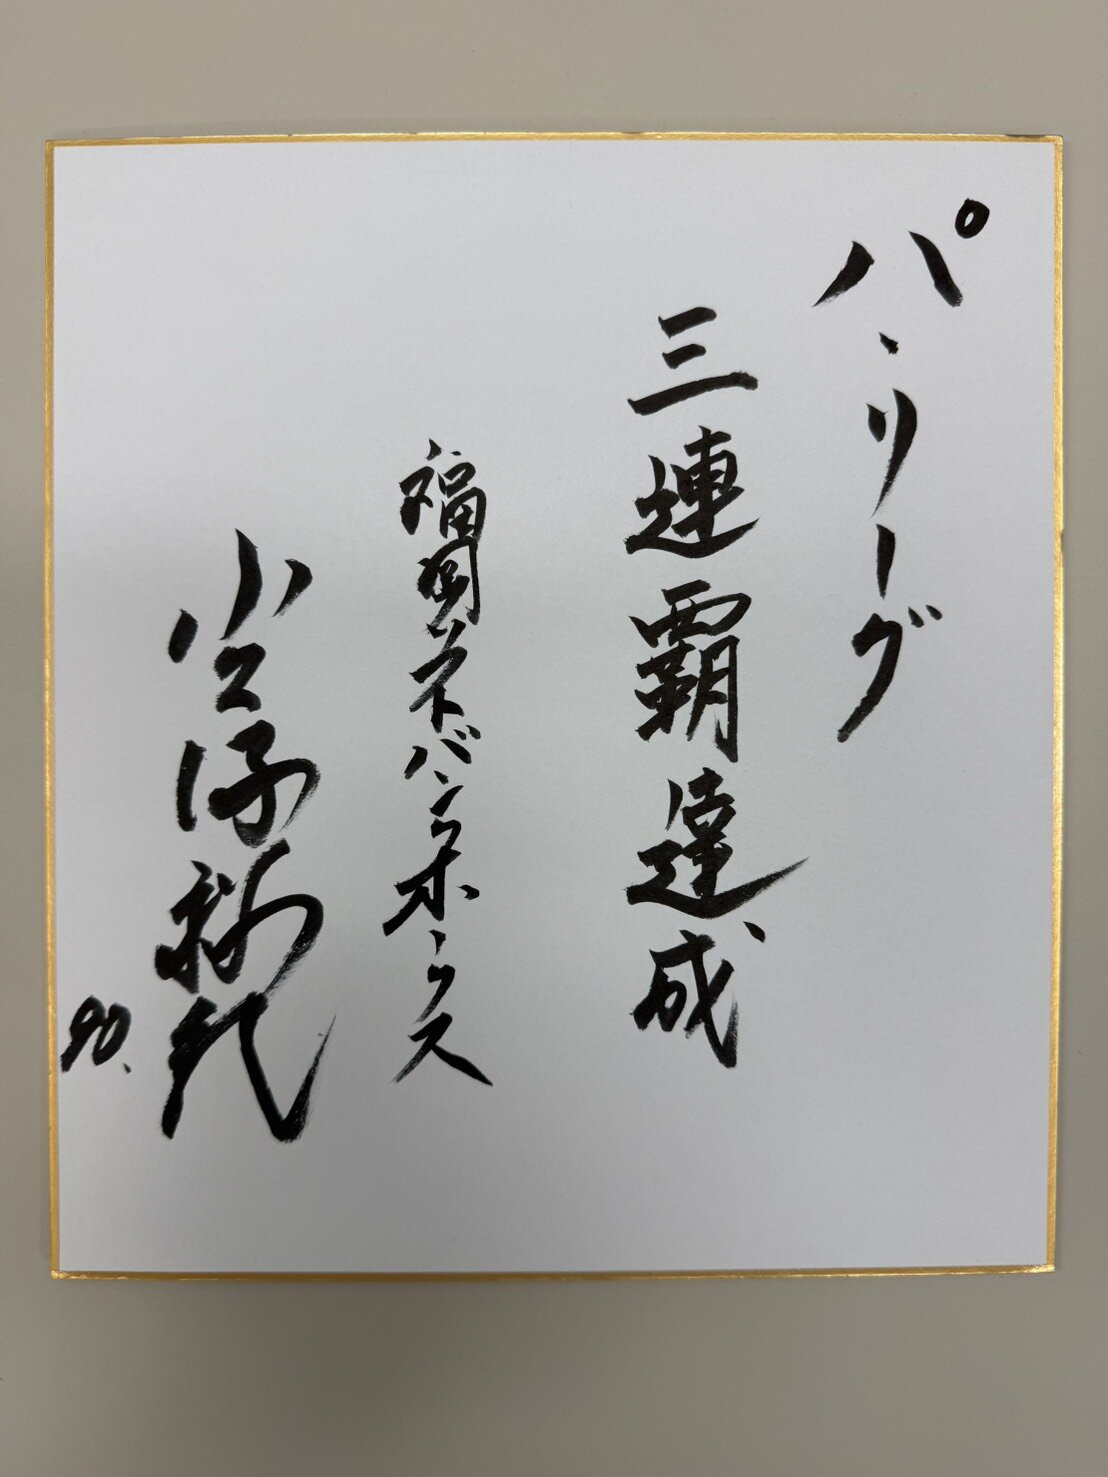 パ・リーグ
三連覇達成
福岡ソフトバンクホークス
小久保裕紀
90.